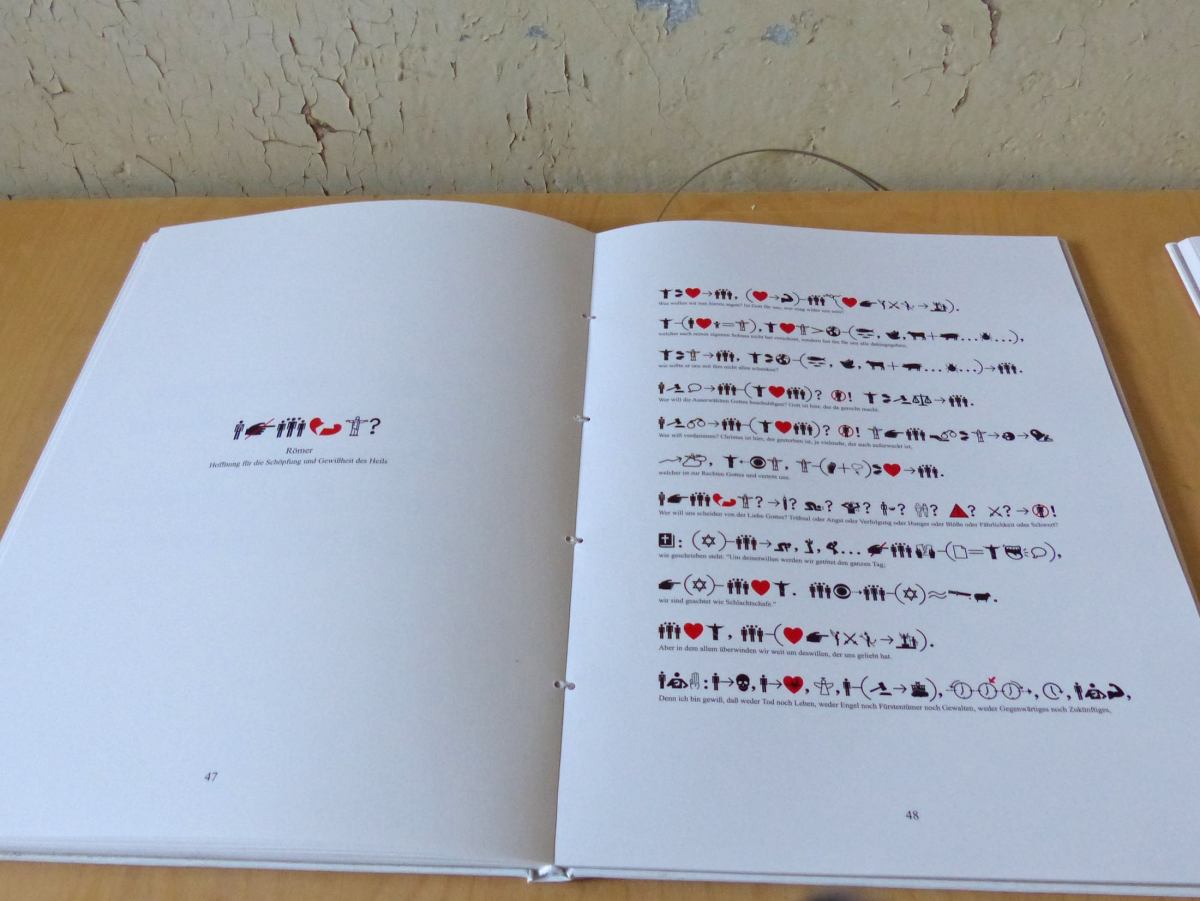 ?
Römer
Hoffnung für die Schöpfung und Gewißheit des Heils
47
Was wollen wir nun hierzu sagen? Ist Gott für uns, wer mag wider uns sein?
welcher auch seines eigenen Sohnes nicht hat verschont, sondern hat ihn für uns alle dahingegeben,
wie sollte er uns mit ihm nicht alles schenken?
Wer will die Auserwählten Gottes beschuldigen? Gott ist hier, der da gerecht macht.
Wer will verdammen? Christus ist hier, der gestorben ist, ja vielmehr, der auch auferweckt ist,
welcher ist zur Rechten Gottes und vertritt uns.
Wer will uns scheiden von der Liebe Gottes? Trübsal oder Angst oder Verfolgung oder Hunger oder Blöße oder Fährlichkeit oder Schwert?
wie geschrieben steht: "Um deinetwillen werden wir getötet den ganzen Tag;
wir sind geachtet wie Schlachtschafe."
Aber in dem allem überwinden wir weit um deswillen, der uns geliebt hat.
Denn ich bin gewiß, daß weder Tod noch Leben, weder Engel noch Fürstentümer noch Gewalten, weder Gegenwärtiges noch Zukünftiges,
48